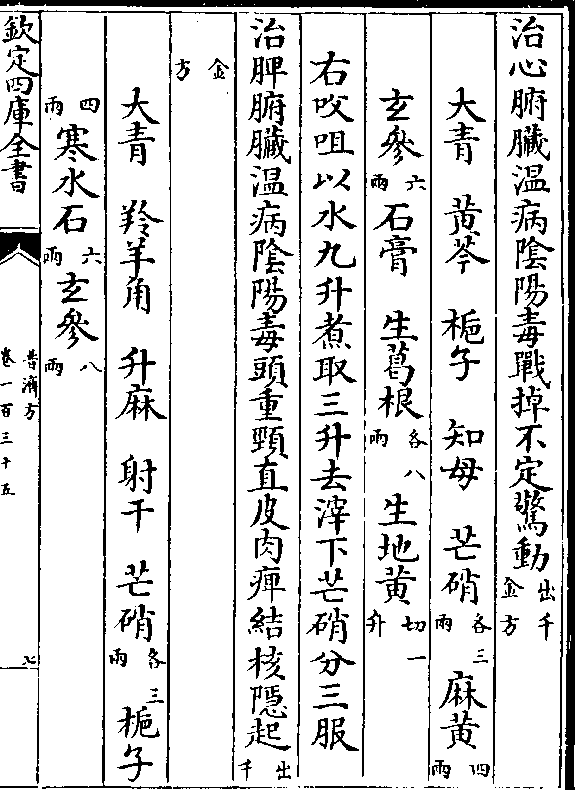 治心腑臟温病陰陽毒戰掉不定驚動出千金方
大青 黄芩 梔子 知母 芒硝各三兩 麻黄四兩
玄參六兩 石膏 生葛根各八兩 生地黄切一升
右㕮咀以水九升煮取三升去滓下芒硝分三服
治脾腑臟温病陰陽毒頭重頸直皮肉痺結核隱起出千
金方
大青 羚羊角 升麻 射干 芒硝各三兩 梔子
四兩 寒水石六兩 玄參八兩
欽定四庫全書
普濟方
卷一百三十五
七